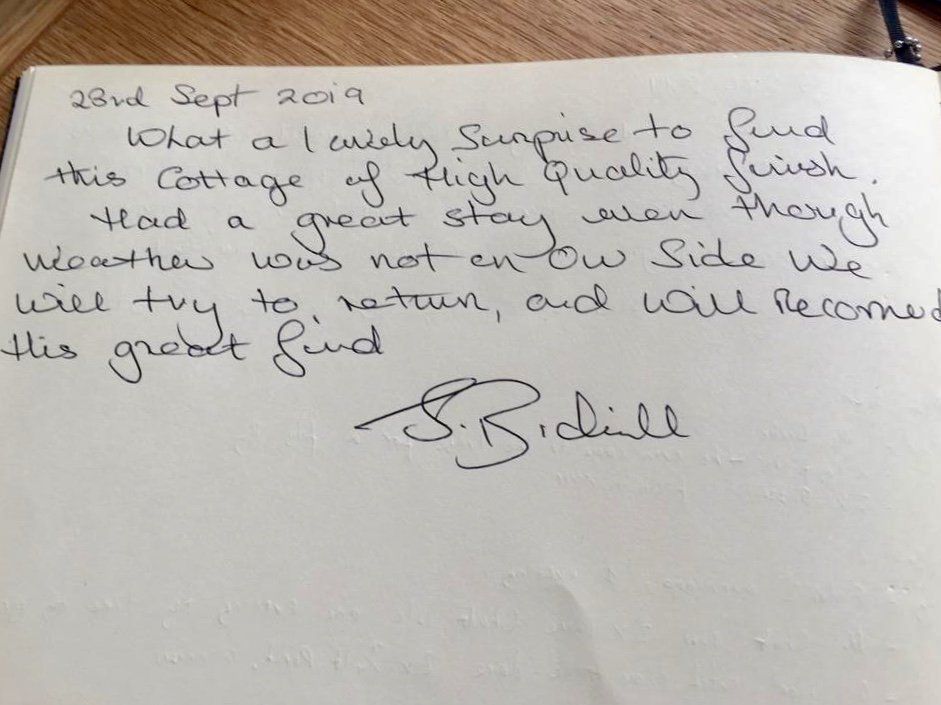 23rd Sept 2019
What a lovely Surprise to find
this Cottage of High Quality finish.
Had a great stay even though
Weather was not on our Side We
will try to return, and will Recomed
this great find
S. B